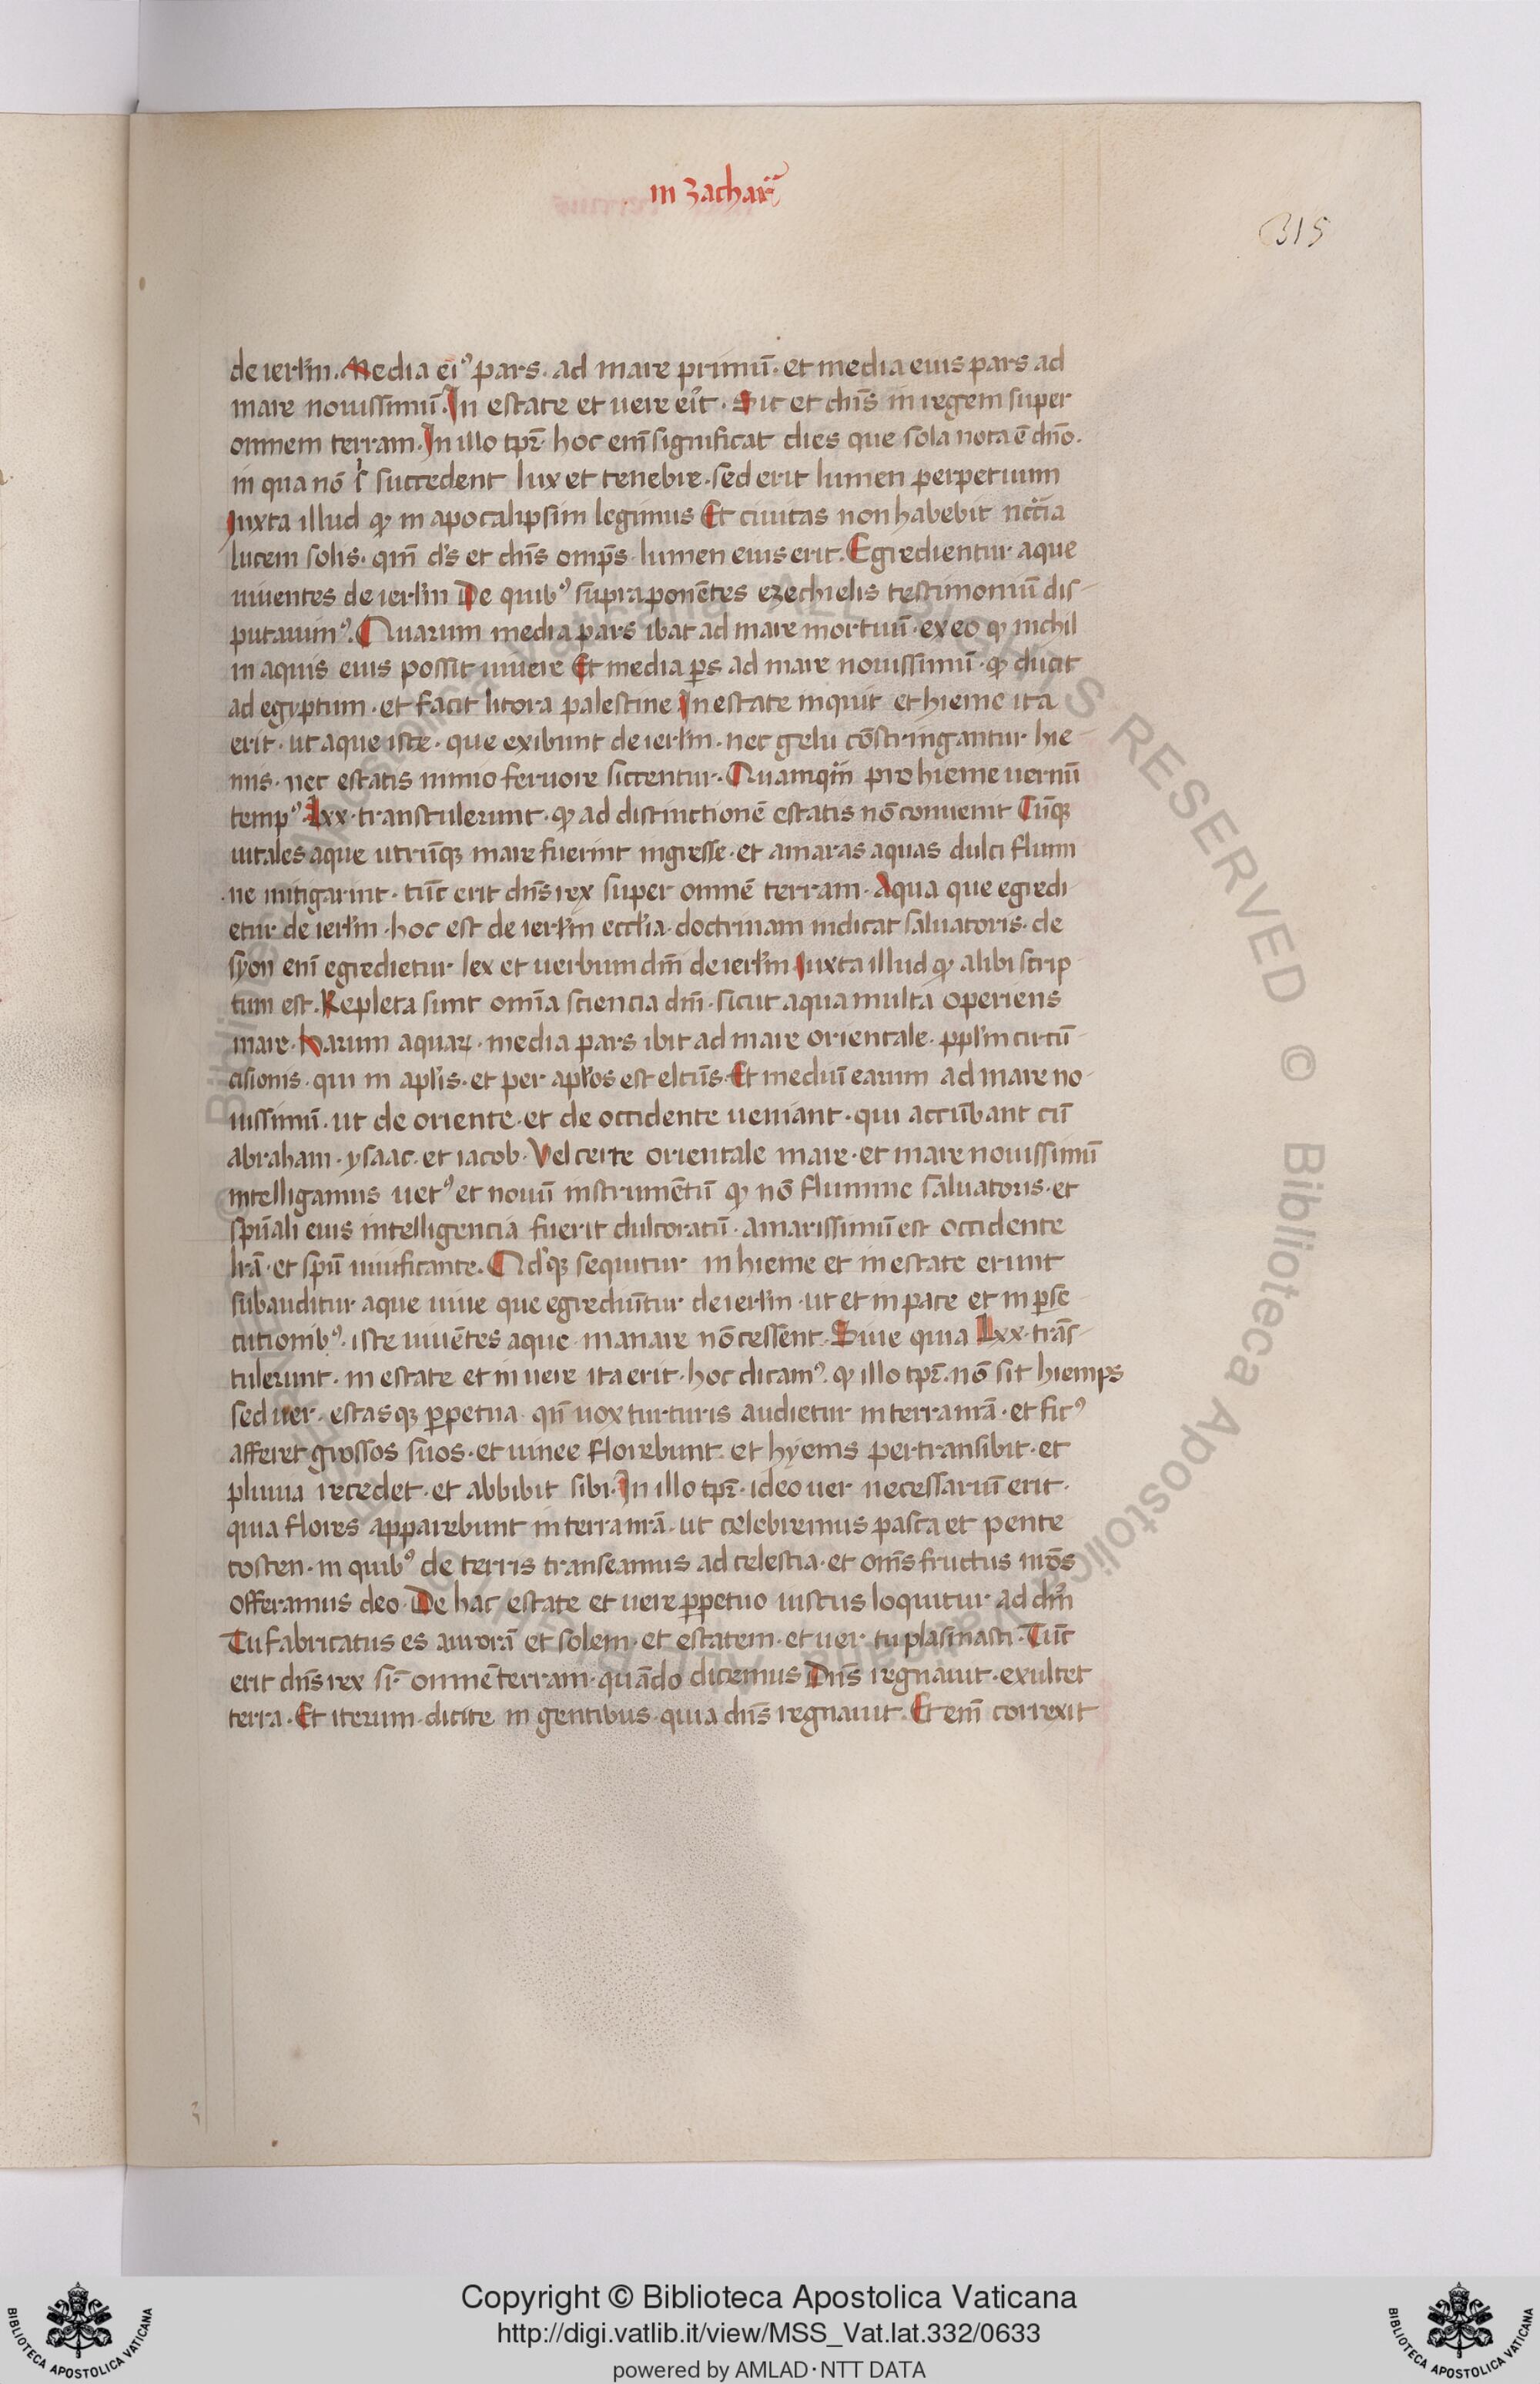 in zachar̄
315
de ierl'm. Media ei⁹ pars. ad mare primū. et media eius pars ad
mare nouissimū. In estate et uere er̉it. Sit et dn̄s in regem super
omnem terram. In illo tpr̄. hoc enī significat dies que sola nota ē dn̄o.
in qua nō sͥ succedent lux et tenebre. sed erit lumen perpetuum
Iuxta illud qͩ in apocalipsim legimus Et ciuitas non habebit
lucem solis. qm̄ d's et dn̄s omp̄s lumen eius erit. Egredientur aque
uiuentes de ierl'm De quib⁹ supra ponētes ezechielis testimoniū dis-
putauim⁹. Quarum media pars ibat ad mare mortuū. ex eo qͩ nichil
in aquis eius possit uiuere Et media ꝑs ad mare nouissimū. qͩ ducit
ad egyptum. et facit litora palestine In estate inquit et hieme ita
erit. ut aque iste. que exibunt de ierl'm. nec gelu cōstringantur hie-
mis. nec estatis nimio feruore siccentur. Quamqͣm pro hieme uernū
temp⁹ Lxx. transtulerunt. qͩ ad distinctionē estatis nō conuenit Cūqꝫ
uitales aque utrūqꝫ mare fuerint ingresse. et amaras aquas dulci flumi
ne mitigarint. tūc erit dn̄s rex super omnē terram. Aqua que egredi
etur de ierl'm. hoc est de ierl'm eccl'ia. doctrinam indicat saluatoris. de
syon enī egredietur lex et uerbum dn̄i de ierl'm Iuxta illud qͩ alibi scrip
tum est. Repleta sunt omīa sciencia dn̄i. sicut aqua multa operiens
mare. Harum aquaꝝ. media pars ibit ad mare orientale. ppl'm circū-
cisionis. qui in apl'is. et per apl'os est elcūs. Et mediū earum ad mare no-
uissimū. ut de oriente. et de occidente ueniant. qui accūbant cū
abraham. ysaac. et iacob. Vel certe orientale mare. et mare nouissimū
intelligamus uet⁹ et nouū instrumētū qͩ nō flumine saluatoris. et
spūali eius intelligencia fuerit dulcoratū. amarissimū est occidente
lrā. et spū uiuificante. Qd'qꝫ sequitur in hieme et in estate erunt
subauditur aque uiue que egrediūtur de ierl'm. ut et in pace et in ꝑse
cutionib⁹. iste uiuētes aque manare nō cessent. Siue quia Lxx. trās-
tulerunt. in estate et in uere ita erit. hoc dicam⁹. qͩ illo tpr̄. nō sit hiemps
sed uer. estasqꝫ ꝑpetua. qn̄ uox turturis audietur in terra nrā. et fic⁹
afferet grossos suos. et uinee florebunt. et hyems pertransibit. et
pluuia recedet. et abbibit sibi. In illo tpr̄. ideo uer necessariū erit.
quia flores apparebunt in terra nrā. ut celebremus pasca et pente
costen. in quib⁹ de terris transeamus ad celestia. et omīs fructus nrōs
offeramus deo. De hac estate et uere ꝑpetuo iustus loquitur ad dn̄m
Tu fabricatus es aurorā et solem. et estatem. et uer tu plasmasti. Tūc
erit dn̄s rex sr̄ omnē terram. quādo dicemus Dn̄s regnauit. exultet
terra. Et iterum. dicite in gentibus. quia dn̄s regnauit. Et enī correxit
Copyright © Biblioteca Apostolica Vaticana
http://digi.vatlib.it/view/MSS_Vat.lat.332/0633
powered by AMLAD·NTT DATA